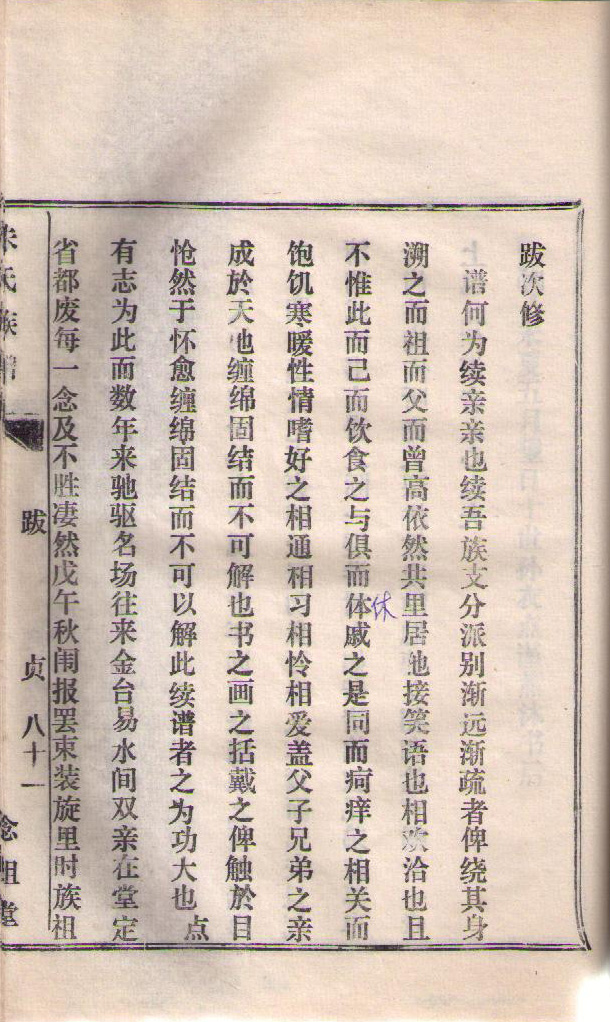 跋次修
谱何为续亲亲也续吾族支分派别渐远渐疏者俾绕其身
溯之而祖而父而曾高依然共里居也接笑语也相欢洽也且
不惟此而己而饮食之与俱而体戚之是同而疴痒之相关而
休
饱饥寒暖性情嗜好之相通相习相怜相爱盖父子兄弟之亲
成於天也缠绵固结而不可解也书之画之括戴之俾触於目
怆然于怀愈缠绵固结而不可以解此续谱者之为功大也点
有志为此而数年来驰驱名场往来金台易水间双亲在堂定
省都废每一念及不胜凄然戊午秋闱报罢束装旋里时族祖
朱氏族谱
跋
贞 八十一
念祖堂